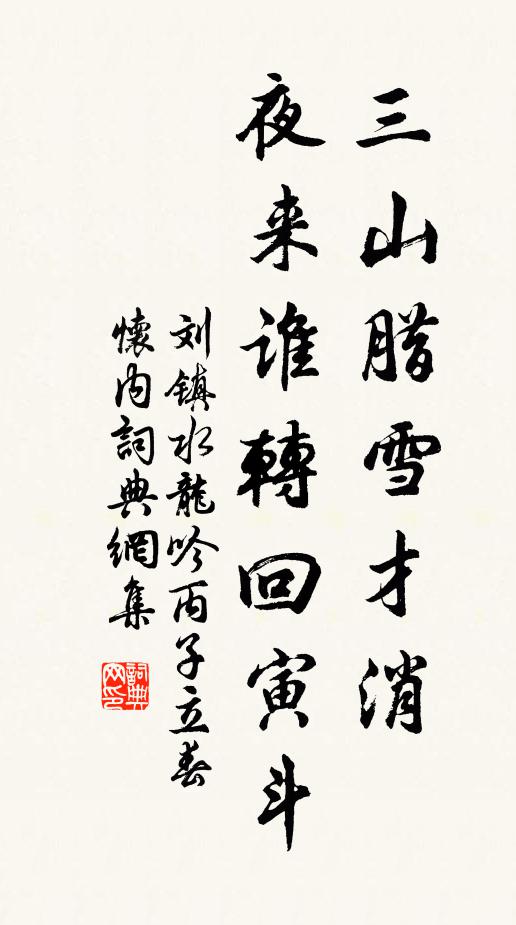 三山腊雪才消
夜来谁轉回寅斗
刘镇水龍吟丙子立春
懷内詞典網集
詞典网印